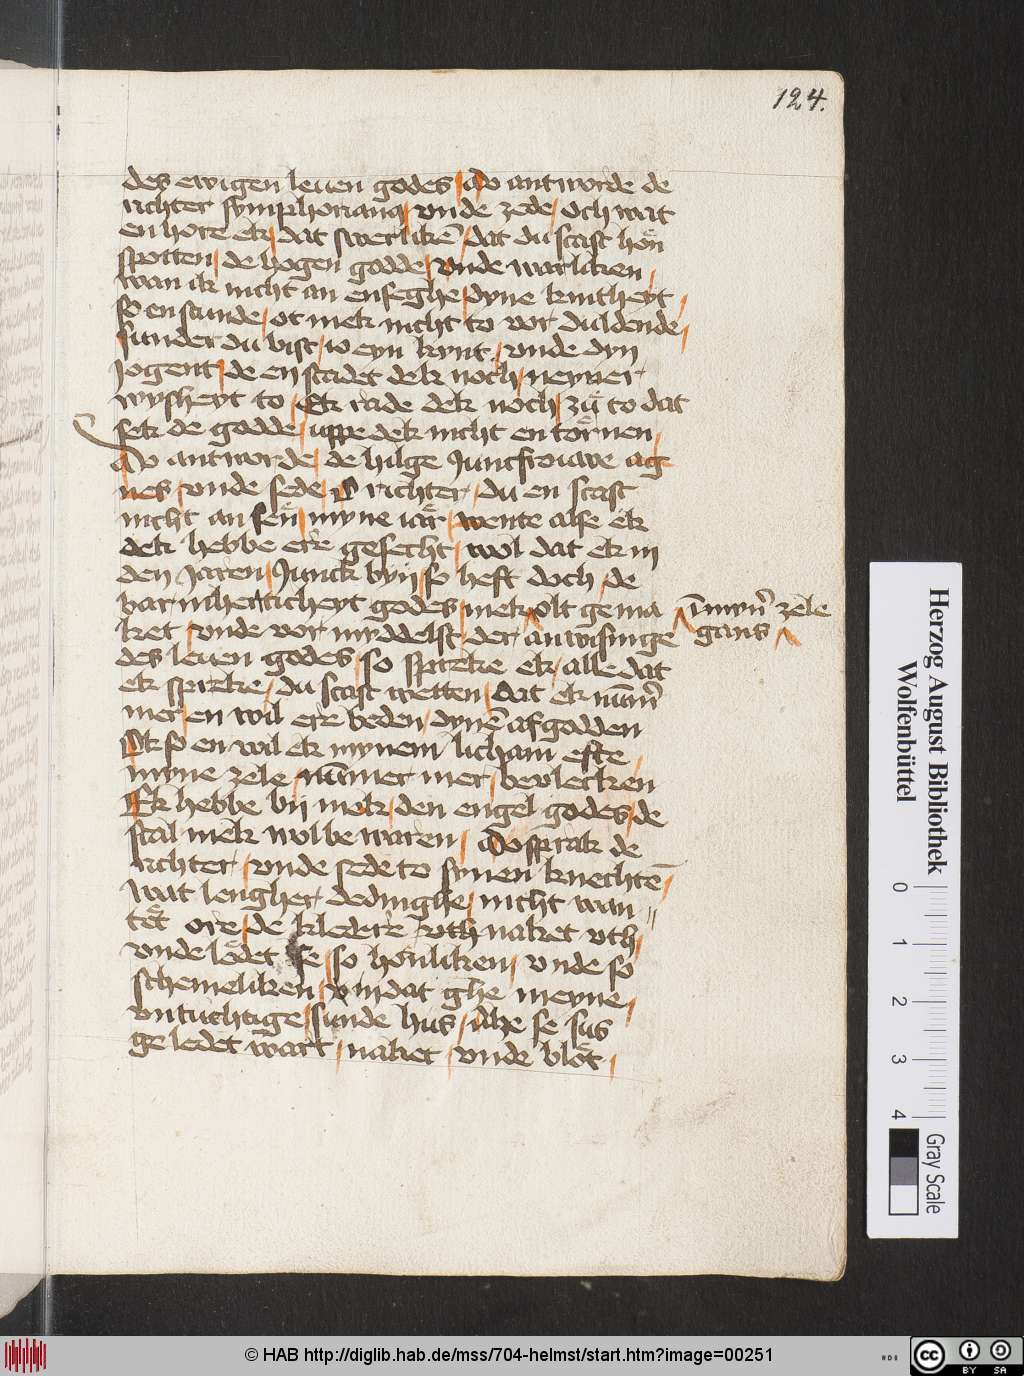 124.
des ewigen leuen godes / Do antworde de
richter symphorianus / vnde zede / och wat
en hore ek / dat swerliken̄ / dat du scast hon̄
spotten / de hogen godde / vnde warliken /
wan ik nicht an enseghe / dyne kintheyt /
so en stunde / ot mek nicht to vor duldende /
sunder du bist / io eyn kynt / vnde dyn
Jogent / de en stadet dek noch / neyner
wysheyt to / Ek rade dek noch / zů to dat
sek de godde / uppe dek nicht en tornen /
Do antworde / de hilge Juncfrouwe ag
nes / vnde sede / O richter / du en scast
nicht an sen / myne iar / wente alse ek
dek hebbe ere gesecht / wol dat ek in
den Jaren / Junck byn / so heft doch / de
barmherticheyt godes / mek olt gema
ket / vnde vor myddelst / der / anwisinge
in myner zele
gans
des leuen godes / so spreke ek / alle dat
ek spreke / du scast wetten / dat ek num̄er
mer en wil ere beden / dynen̄ afgodden
Ok so en wil ek mynem licham efte /
myne zele / num̄mer mer / bevlecken
Ek hebbe by mek / den engel godes / de
scal mek wol be waren / Do sprak de
richter / vnde sede to synen knechten̄ /
wat lengher dedinghe / nicht wan //
tet ore / de kledere vth naket vth /
vnde ledet se / so honliken / vnde so
schemeliken / vm dat ghe meyne /
vntuchtige / sunde hus / Alze se sus
ge ledet wart / naket / vnde blot /
Herzog August Bibliothek
Wolfenbüttel
0 1 2 3 4
Gray Scale
© HAB http://diglib.hab.de/mss/704-helmst/start.htm?image=00251
HAB
cc BY SA